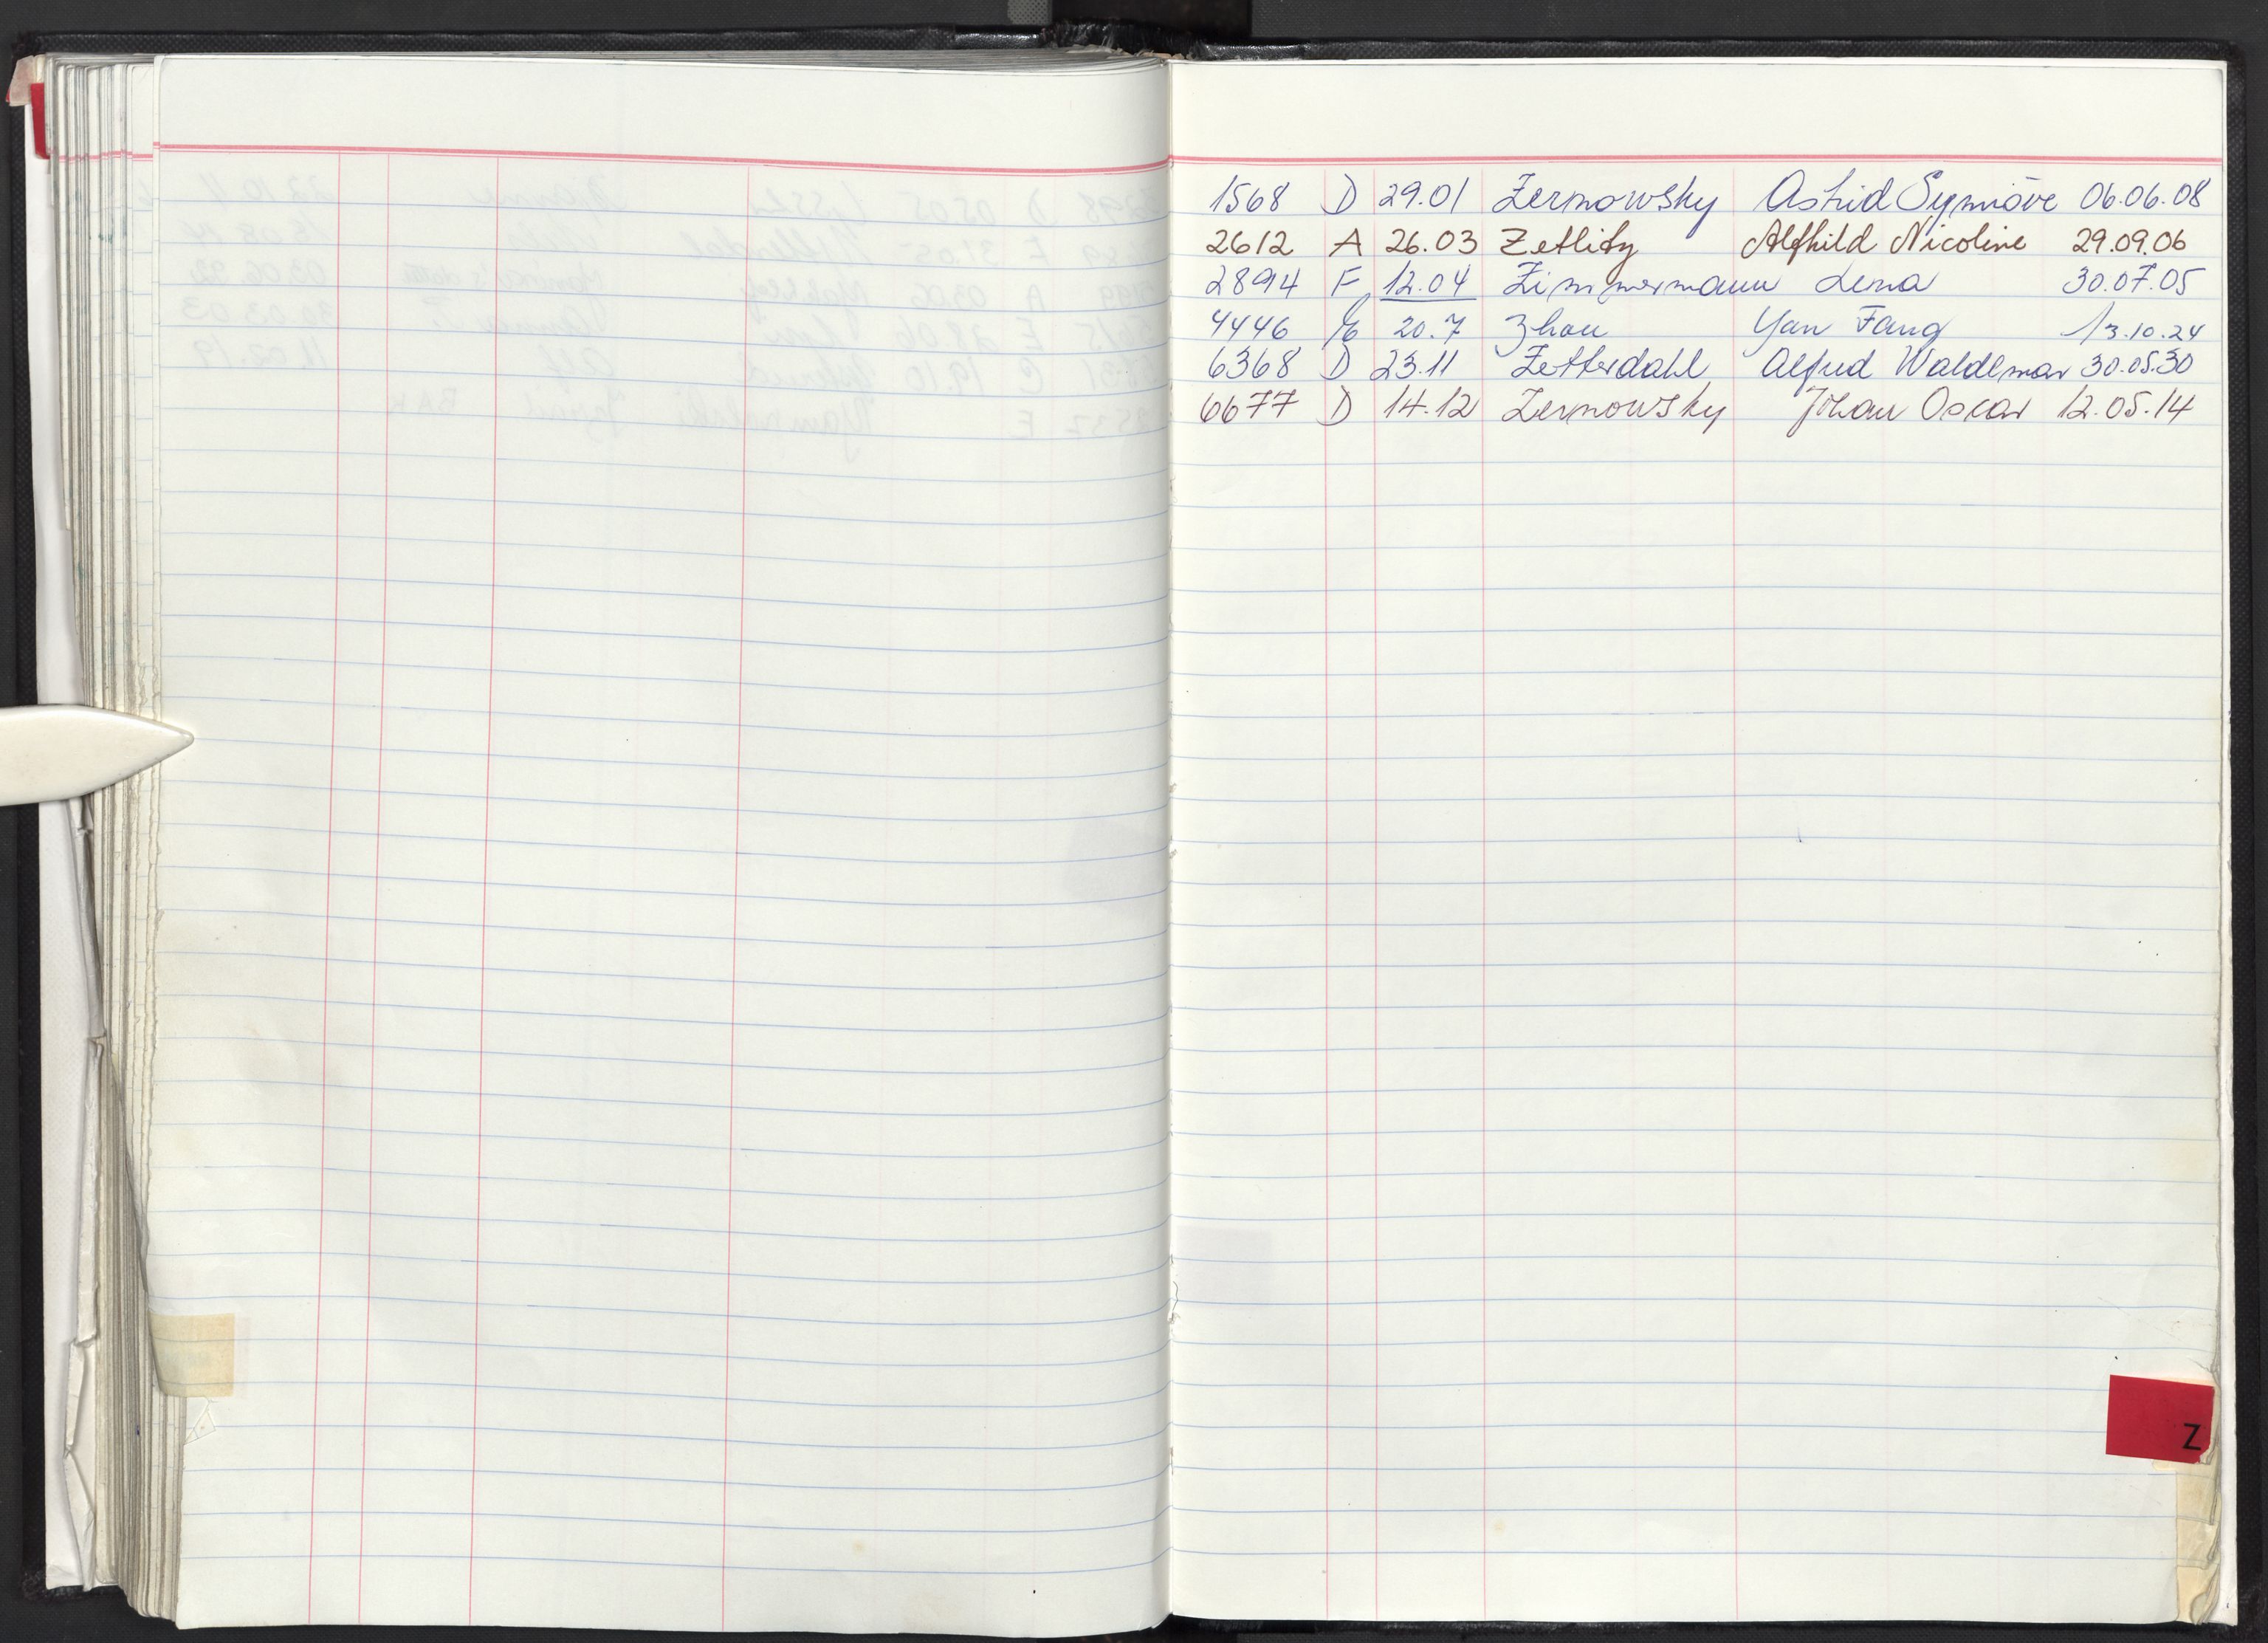 1568 D 29.01 Zernowsky Astrid Synnöve 06.06.08
2612 A 26.03 Zetlitz Alfhild Nicoline 29.09.06
2894 F 12.04 Zimmermann Lena 30.07.05
4446 E 20.7 Zhou Yan Fang 13.10.24
6368 D 23.11 Zetterdahl Alfred Waldemar 30.05.30
6677 D 14.12 Zernowsky Johan Oscar 12.05.14
Z